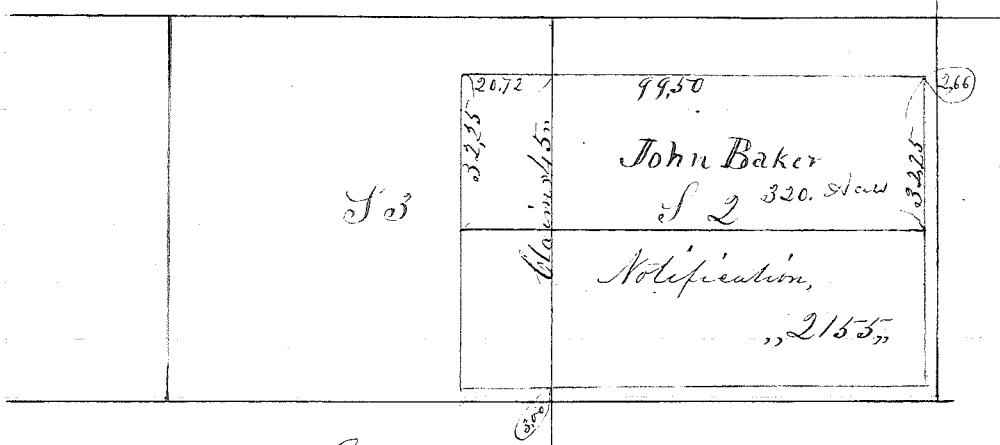 20.72
99,50
2,66
32,25
Claim „45„
John Baker
32,25
S 3
S 2 320. Acres
Notification,
„2155„
3,00